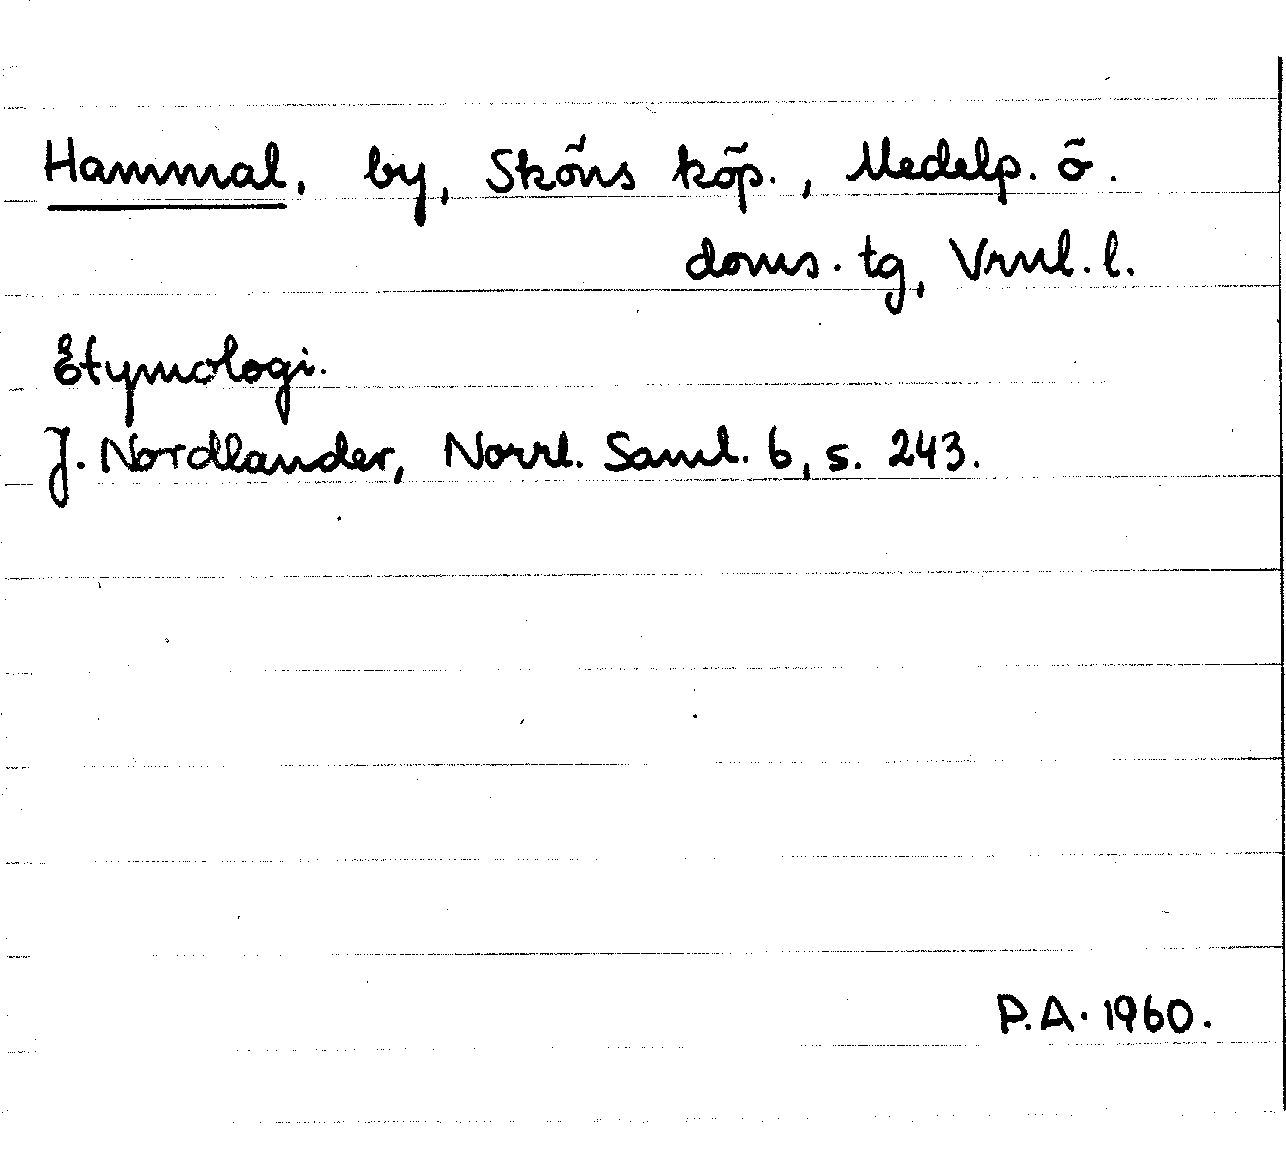 Hammal, by, Sköns köp., Medelp. ö.
doms. tg, Vrnl. l.
Etymologi.
J. Nordlander, Norrl. Saml. 6, s. 243.
P.A. 1960.